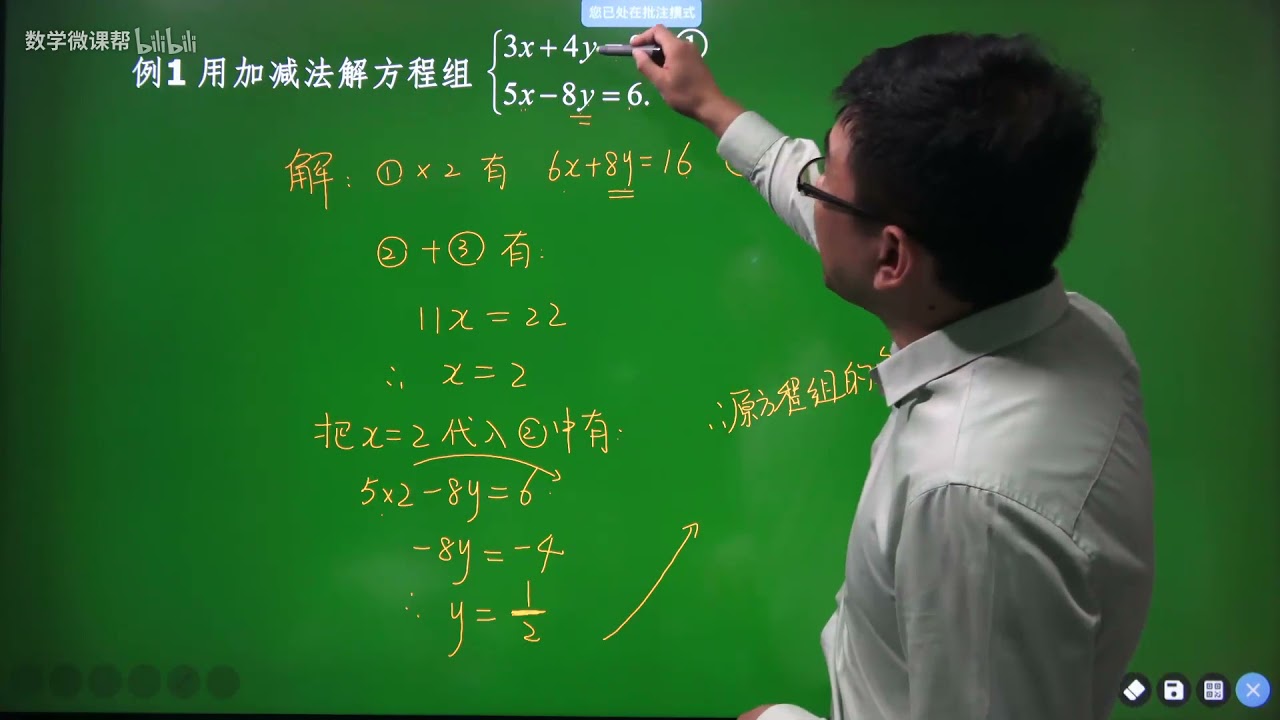 您已处在批注模式
数学微课帮 bilibili
例1 用加减法解方程组 { 3x+4y
5x-8y=6.
解: ①×2 有 6x+8y=16
②+③ 有:
11x=22
∴ x=2
把 x=2 代入②中有:
5×2-8y=6
-8y=-4
∴ y=1/2
∴源方程组的